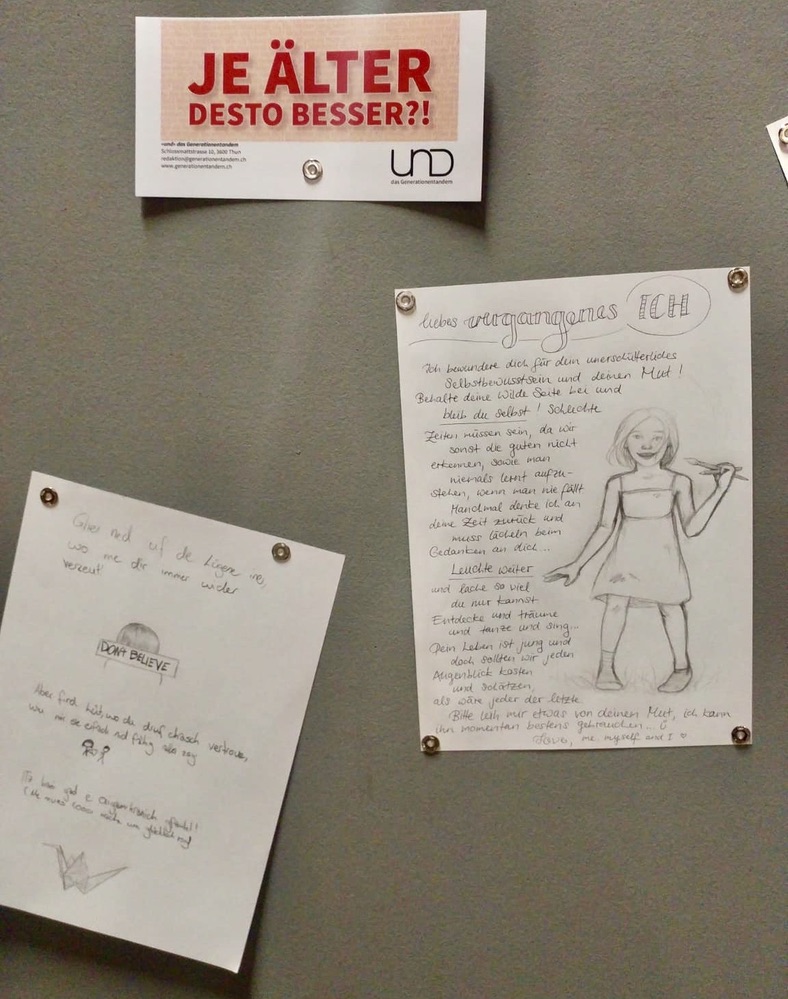 JE ÄLTER
DESTO BESSER?!
«und» das Generationentandem
Schlossmattstrasse 10, 3600 Thun
redaktion@generationentandem.ch
www.generationentandem.ch
UND
das Generationentandem
liebes vergangenes ICH
Ich bewundere dich für dein unerschütterliches
Selbstbewusstsein und deinen Mut!
Behalte deine Wilde Seite bei und
bleib du selbst! Schlechte
Zeiten müssen sein, da wir
sonst die guten nicht
erkennen, sowie man
niemals lernt aufzu-
stehen, wenn man nie fällt
Manchmal denke ich an
deine Zeit zurück und
muss lächeln beim
Gedanken an dich...
Leuchte weiter
und lache so viel
du nur kannst
Entdecke und träume
und tanze und sing...
Dein Leben ist jung und
doch sollten wir jeden
Augenblick kosten
und schätzen,
als wäre jeder der letzte
Bitte leih mir etwas von deinem Mut, ich kann
ihn momentan bestens gebrauchen...
Love, me myself and I
uf de
wo me dir immer wider
verzeut
DON'T BELIEVE
Aber